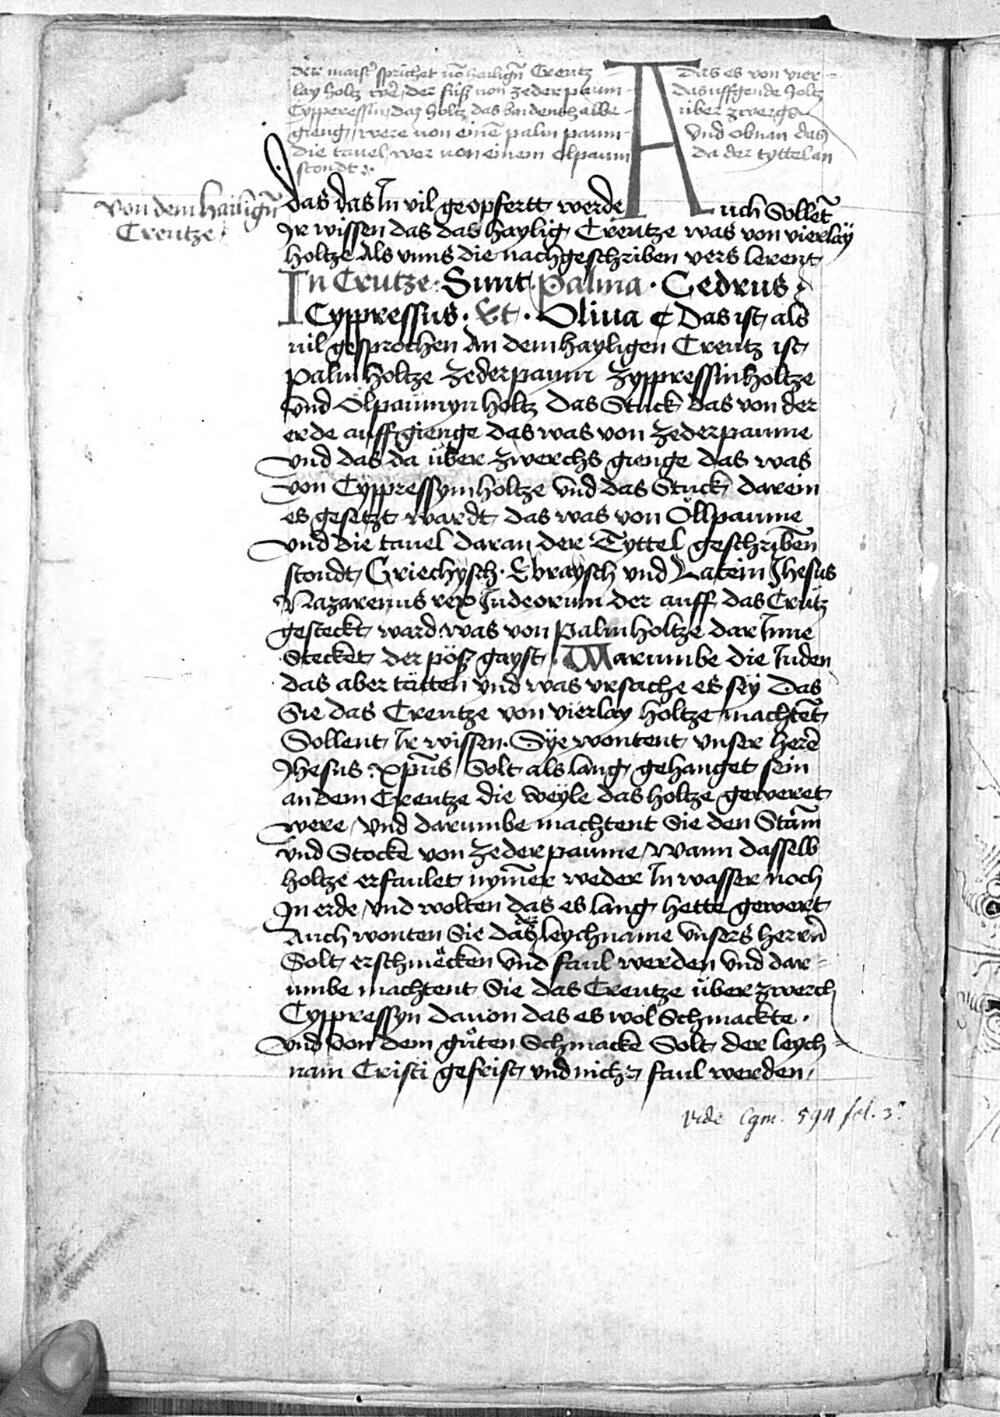 der maist' sprichet vō hailigñ Creutz das es von vier-
lay holtz wer, der fuß von zeder paum das uffgende holtz
Cyppressin, daz holtz das über zwergs
gieng, were von einē palm paum und obnan das
die tauel, wer von einem olpaum da der tyttel an
stondt
Von dem hailigñ
Creutze
das das Jn vil geopfertt werde Auch Sollet
Jr wissen das das haylig Creutze was von vierlay
holtze Als vnns die nachgeschriben vers lerent
In Crutze Sunt palma Cedrus
Cyppressus Et Oliua Das ist als
vil gesprochen An dem hayligen Creutz ist
palm holtze zederpaum zyppressin holtze
vnd Ölpaumyn holtz Das Stuck das von der
erde auff gienge das was von zederpaume
vnd das da über zwerchs gienge das was
von Cyppressym holtze vnd das Stuck darein
es gesetzt wardt das was von Öllpaume
vnd die tauel daran der Tyttel geschriben
stondt Griechysch Ebraysch vnd Latein Jhesus
Nazarenus rex Judeorum der auff das Crutz
gesteckt ward was von palm holtze dar Jnne
Stecket der pöß gayst Warumbe die Juden
das aber tätten vnd was vrsache es sey Das
Sie das Creutze von vierlay holtze machtet
Sollent Jr wissen Sye wontent vnser here
Jhesus xp̄us Solt als lang gehanget sein
an dem Creutze die weyle das holtze geweret
were / vnd darumbe machtent Sie den Stam
vnd Stocke von zeder paume / wann dasselb
holtze erfaulet nymer weder Jn wasser noch
Jn erde / vnd wolten das es lang hette gewert
Auch wonten Sie das leychname vnsers herrñ
Solt erschmecken vnd faul werden vnd dar-
umbe machtent Sie das Creutze über zwerch
Cyppressyn dauon das es wol Schmackte
vnd von dem guten Schmacke Solt der leych-
nam Cristi gefrist vnd nicht faul werden
vide Cgm. 594 fol. 3.